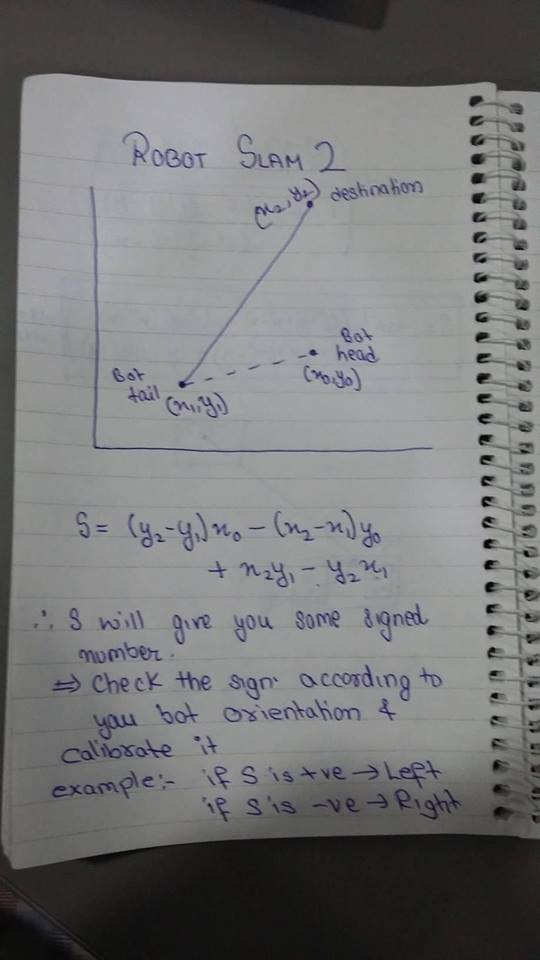 ROBOT SLAM 2
(x₂,y₂) destination
Bot
head
(x₀,y₀)
Bot
tail
(x₁,y₁)
S = (y₂-y₁)x₀ - (x₂-x₁)y₀
+ x₂y₁ - y₂x₁
∴ S will give you some signed
number.
⇒ Check the sign according to
you bot orientation &
calibrate it
example:- if S is +ve → Left
if S is -ve → Right